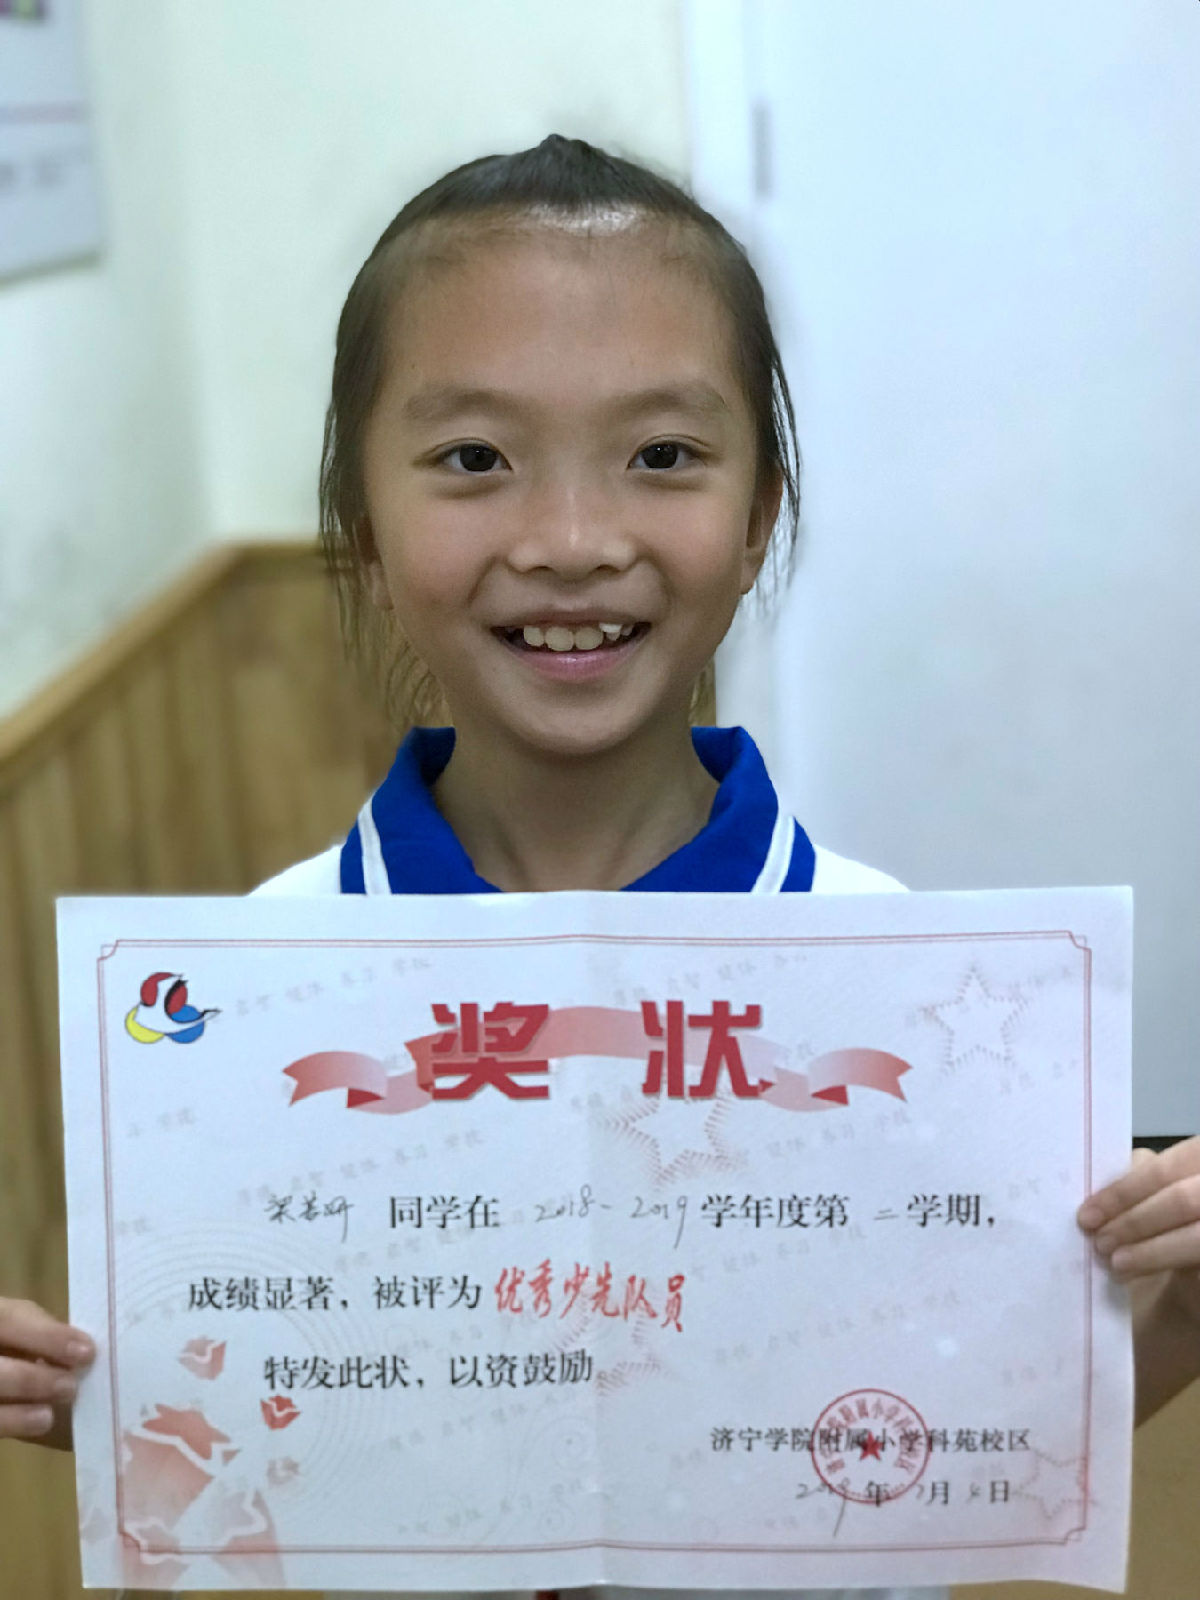 奖状
梁若妍 同学在 2018-2019 学年度第 二 学期，
成绩显著，被评为 优秀少先队员
特发此状，以资鼓励
济宁学院附属小学科苑校区
2019年7月 日